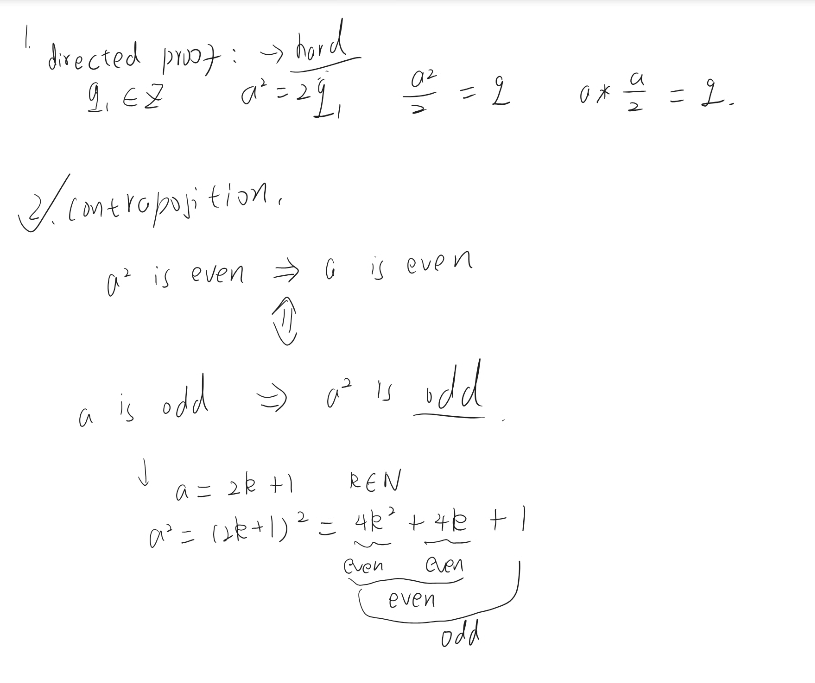 1. directed proof : → hard
q₁ ∈ Z a² = 2q₁ a²/2 = q a * a/2 = q.
2. contraposition.
a² is even ⇒ a is even
⇕
a is odd ⇒ a² is odd.
↓ a = 2k + 1 k ∈ N
a² = (2k+1)² = 4k² + 4k + 1
even even
even
odd